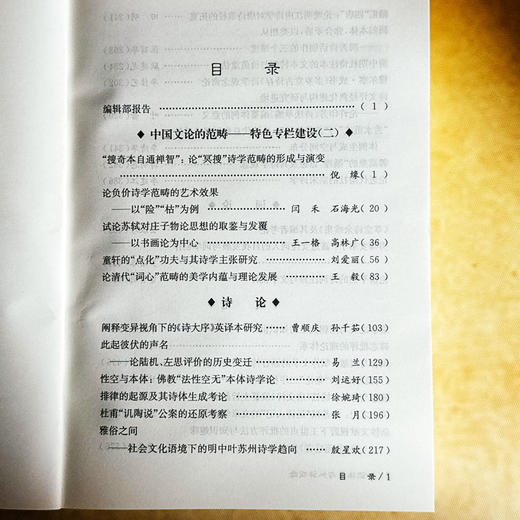 目 录
编辑部报告 ……………………………………………… ( 1 )
◆ 中国文论的范畴——特色专栏建设(二) ◆
“搜奇本自通禅智”：论“冥搜”诗学范畴的形成与演变
……………………………………………… 倪 缘( 1 )
论负价诗学范畴的艺术效果
——以“险”“枯”为例 …………………… 闫 禾 石海光( 20 )
试论苏轼对庄子物论思想的取鉴与发覆
——以书画论为中心 …………………… 王一格 高林广( 36 )
童轩的“点化”功夫与其诗学主张研究 ………… 刘爱丽( 56 )
论清代“词心”范畴的美学内蕴与理论发展 ……… 王 毅( 83 )
◆ 诗 论 ◆
阐释变异视角下的《诗大序》英译本研究 … 曹顺庆 孙千茹(103)
此起彼伏的声名
——论陆机、左思评价的历史变迁 ………… 易 兰(129)
性空与本体：佛教“法性空无”本体诗学论 ……… 刘运好(155)
排律的起源及其诗体生成考论 ……………… 徐婉琦(180)
杜甫“讥陶说”公案的还原考察 ……………… 张 月(196)
雅俗之间
——社会文化语境下的明中叶苏州诗学趋向 …… 殷星欢(217)
目 录 / 1